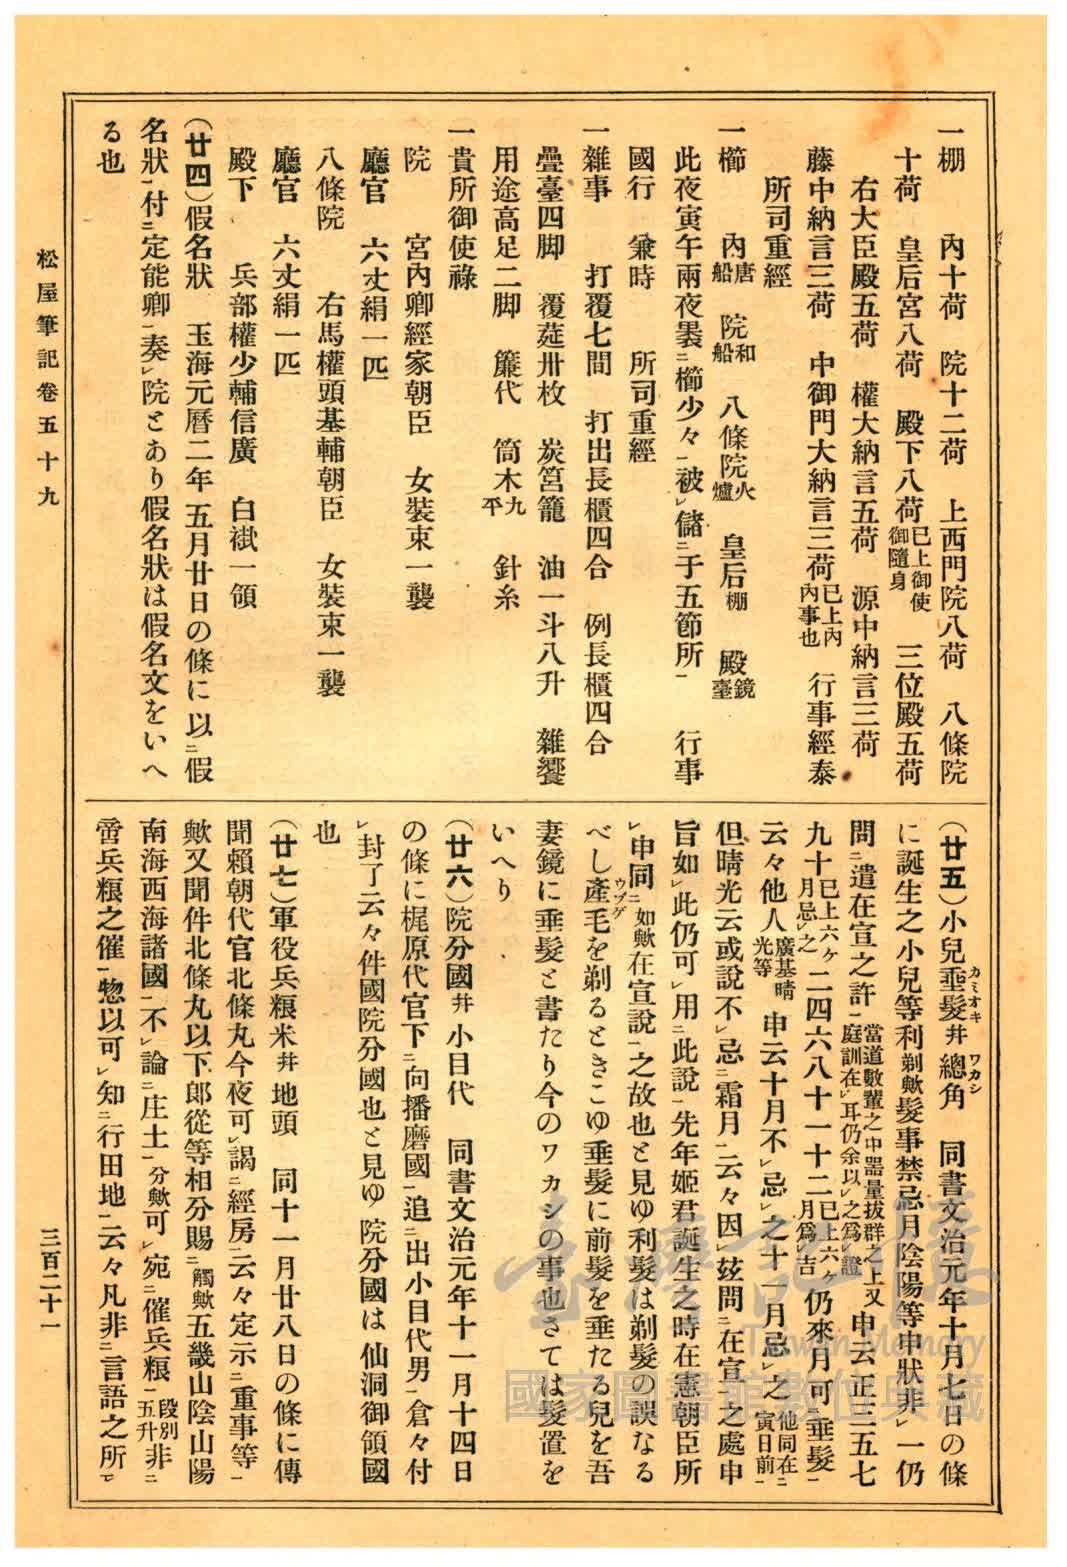 一棚　內十荷　院十二荷　上西門院八荷　八條院
十荷　皇后宮八荷　殿下八荷已上御使御隨身　三位殿五荷
右大臣殿五荷　權大納言五荷　源中納言三荷
藤中納言三荷　中御門大納言三荷已上內內事也　行事經泰
所司重經
一櫛　內唐船　院和船　八條院火爐　皇后棚　殿鏡臺
此夜寅午兩夜褁ニ櫛少々一被レ儲ニ于五節所一　行事
國行　兼時　所司重經
一雜事　打覆七間　打出長櫃四合　例長櫃四合
疊臺四脚　覆莚卅枚　炭筥籠　油一斗八升　雜饗
用途高足二脚　簾代　筒木九平　針糸
一貴所御使祿
院　宮內卿經家朝臣　女裝束一襲
廳官　六丈絹一匹
八條院　右馬權頭基輔朝臣　女裝束一襲
廳官　六丈絹一匹
殿下　兵部權少輔信廣　白袿一領
(廿四)假名狀　玉海元曆二年五月廿日の條に以ニ假
名狀一付ニ定能卿一奏レ院とあり假名狀は假名文をいへ
る也
(廿五)小兒垂髮カミオキ井總角ワカシ　同書文治元年十月七日の條
に誕生之小兒等利剃歟髮事禁忌月陰陽等申狀非レ一仍
問ニ遣在宣之許一當道數輩之中器量拔群之上又庭訓在レ耳仍余以レ之爲レ證申云正三五七
九十已上六ケ月忌レ之二四六八十一十二已上六ケ月爲レ吉仍來月可ニ垂髮一
云々他人廣基晴光等申云十月不レ忌レ之十一月忌レ之他同在ニ寅日前一
但晴光云或說不レ忌ニ霜月一云々因レ玆問ニ在宣一之處申
旨如レ此仍可レ用ニ此說一先年姬君誕生之時在憲朝臣所
レ申同ニ如歟在宣說一之故也と見ゆ利髮は剃髮の誤なる
べし產毛ウブゲを剃るときこゆ垂髮に前髮を垂たる兒を吾
妻鏡に垂髮と書たり今のワカシの事也さては髮置を
いへり
(廿六)院分國井小目代　同書文治元年十一月十四日
の條に梶原代官下ニ向播磨國一追ニ出小目代男一倉々付
レ封了云々件國院分國也と見ゆ院分國は仙洞御領國
也
(廿七)軍役兵粮米井地頭　同十一月廿八日の條に傳
聞賴朝代官北條丸今夜可レ謁ニ經房一云々定示ニ重事等一
歟又聞件北條丸以下郎從等相分賜ニ觸歟五畿山陰山陽
南海西海諸國一不レ論ニ庄土一分歟可レ宛ニ催兵粮一段別五升非ニ
啻兵粮之催一惣以可レ知ニ行田地一云々凡非ニ言語之所レ
松屋筆記卷五十九
三百二十一
臺灣記憶
Taiwan Memory
國家圖書館數位典藏